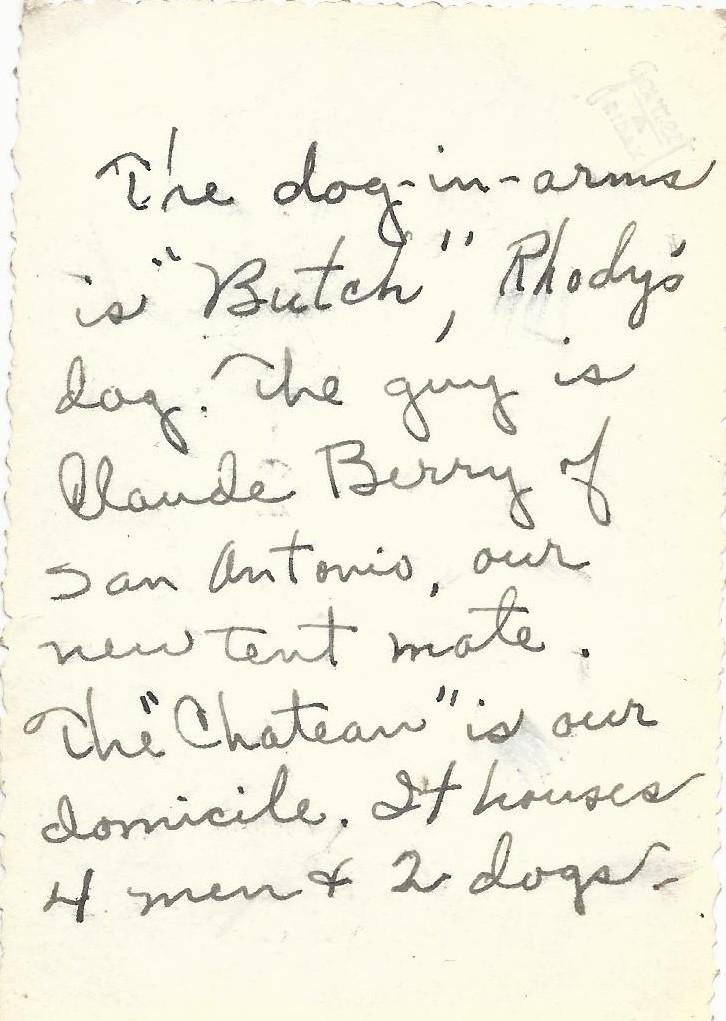 The dog-in-arms
is "Butch", Rhody's
dog. The guy is
Claude Berry of
San Antonio, our
new tent mate.
The "Chateau" is our
domicile. It houses
4 men & 2 dogs -